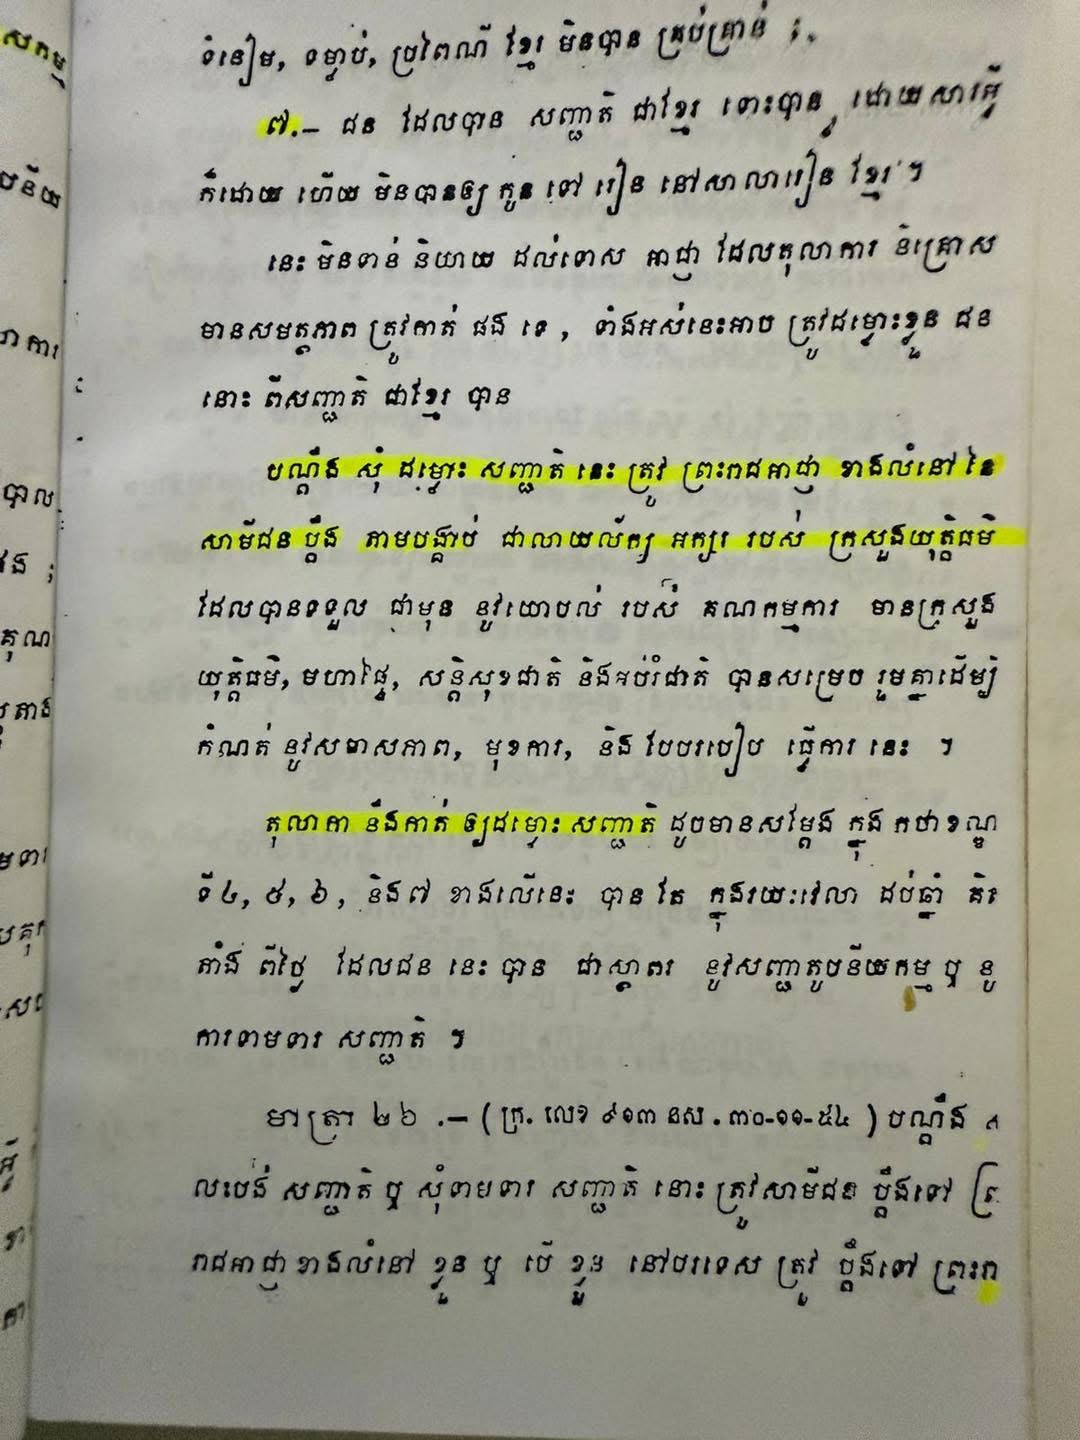 សកម្ម
បនីយ
រាការ
បាល
វង ;
គុណ
តាង
មទារ
បគុ
សប
ទំនៀម, ទម្លាប់, ប្រពៃណី ខ្មែរ មិនបាន គ្រប់គ្រាន់ ;
៧.– ជន ដែលបាន សញ្ជាតិ ជាខ្មែរ ទោះបាន ដោយសារអ្វី
ក៏ដោយ ហើយ មិនបានឲ្យ កូន ទៅ រៀន នៅសាលារៀន ខ្មែរ ។
នេះ មិនទាន់ និយាយ ដល់ទោស អាជ្ញា ដែលតុលាការ និគ្រោស
មានសមត្ថភាព ត្រូវកាត់ ផង ទេ , ទាំងអស់នេះអាច ត្រូវដម្មោះខ្លួន ជន
នោះ ពីសញ្ជាតិ ជាខ្មែរ បាន
បណ្ដឹង សុំ ដម្មោះ សញ្ជាតិ នេះ ត្រូវ ព្រះរាជអាជ្ញា ខាងលំនៅ នៃ
សាមីជន ប្ដឹង តាមបង្គាប់ ជាលាយល័ក្ខ អក្សរ របស់ ក្រសួងយុត្តិធម៌
ដែលបានទទួល ជាមុន នូវយោបល់ របស់ គណកម្មការ មានក្រសួង
យុត្តិធម៌, មហាផ្ទៃ, សន្តិសុខជាតិ និងអប់រំជាតិ បានសម្រេច រួមគ្នាដើម្បី
កំណត់ នូវសមាសភាព, មុខការ, និង បែបរបៀប ធ្វើការ នេះ ។
តុលាកា នឹងកាត់ ឲ្យដម្មោះ សញ្ជាតិ ដូចមានសម្ដែង ក្នុង កថាខណ្ឌ
ទី៤, ៥, ៦, និង៧ ខាងលើនេះ បាន តែ ក្នុងរយៈវេលា ដប់ឆ្នាំ គិត
តាំង ពីថ្ងៃ ដែលជន នេះ បាន ជាស្ថាពរ នូវសញ្ជាតូបនីយកម្ម ឬ នូ
ការទាមទារ សញ្ជាតិ ។
មាត្រា ២៦ .– ( ក្រ. លេខ ៩១៣ នស . ៣០-១១-៥៤ ) បណ្ដឹង
លះបង់ សញ្ជាតិ ឬ សុំទាមទារ សញ្ជាតិ នោះ ត្រូវសាមីជន ប្ដឹងទៅ
រាជអាជ្ញាខាងលំនៅ ខ្លួន ឬ បើ ខ្លួន នៅបរទេស ត្រូវ ប្ដឹងទៅ ព្រះរា